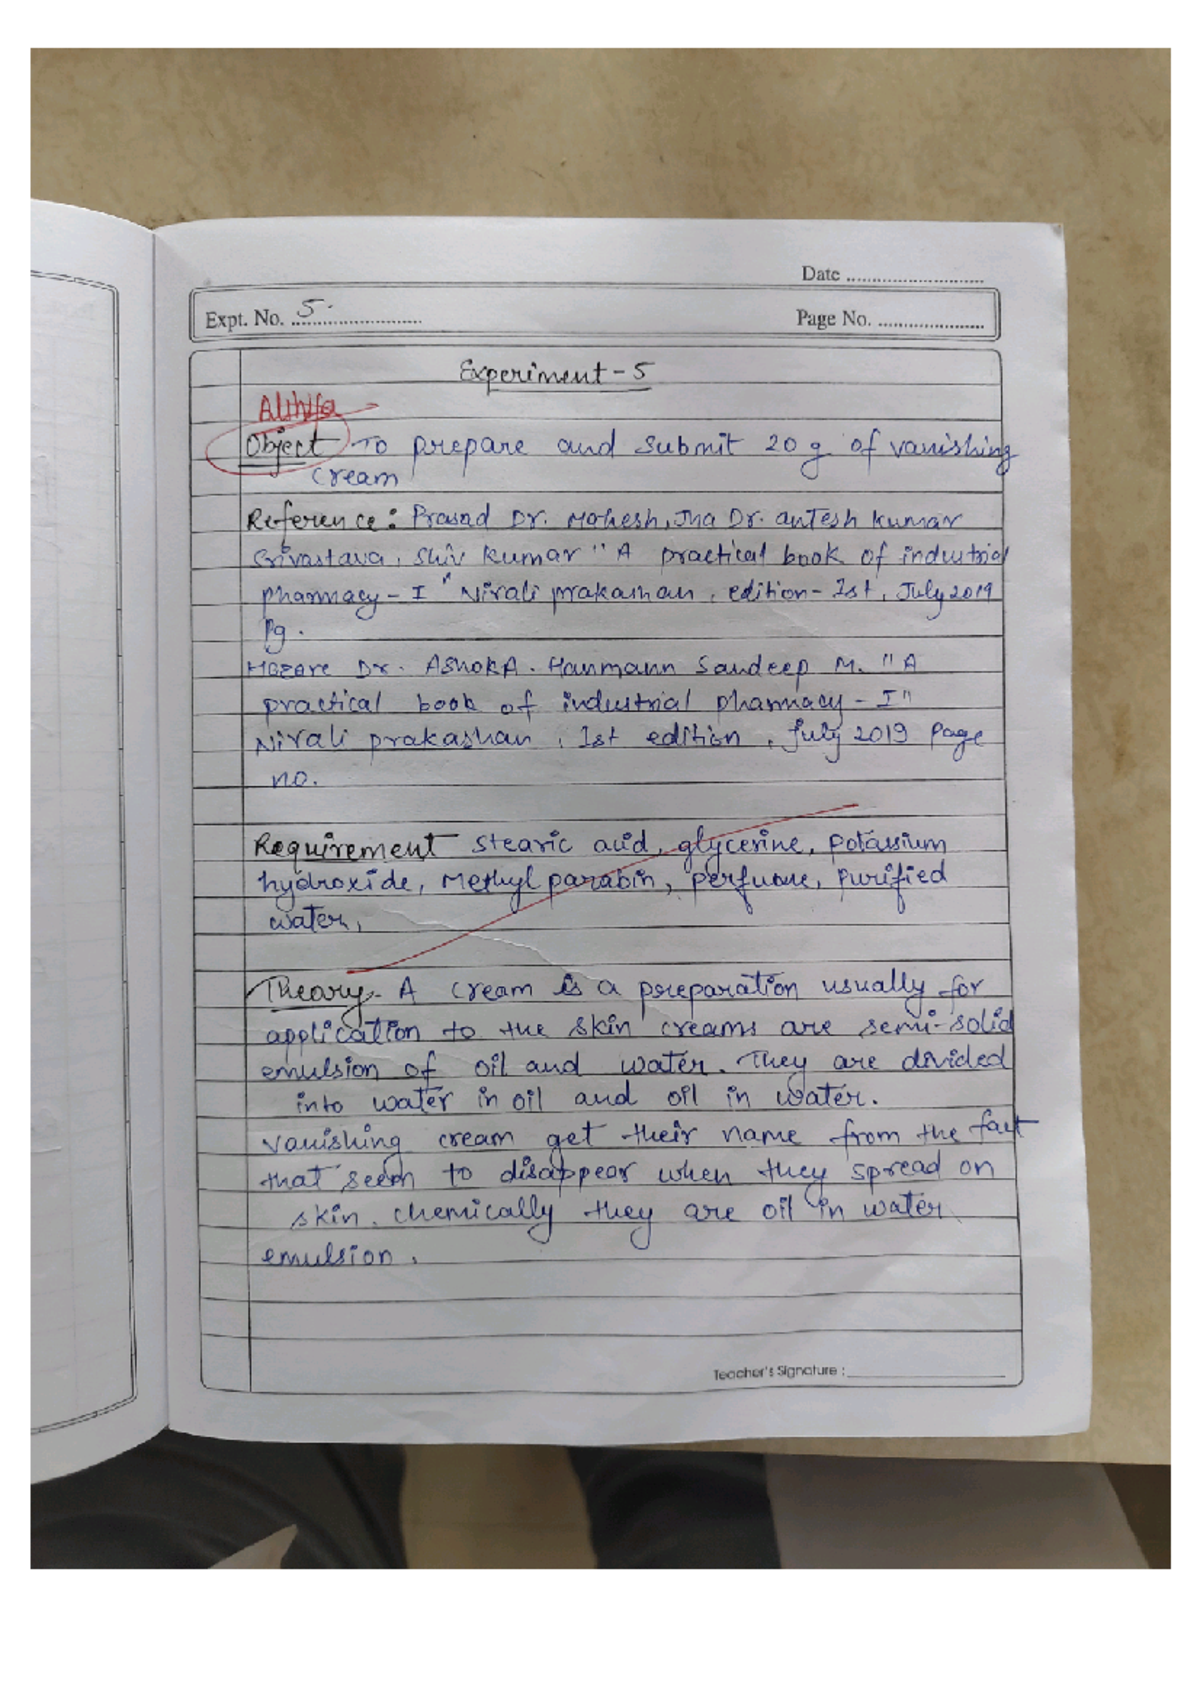 Date
Expt. No. 5.
Page No.
Experiment - 5
Object To prepare and submit 20 g of vanishing
cream
Reference: Prasad Dr. Mohesh, Jha Dr. antesh kumar
Srivastava, Shiv kumar "A practical book of industrial
pharmacy - I" Nirali prakashan, edition - Ist, July 2019
Pg.
Hazare Dr. ASHOKA. Hanmann Sandeep M. "A
practical book of industrial pharmacy - I"
Nirali prakashan, Ist edition, July 2019 Page
no.
Requirement Stearic acid, glycerine, potassium
hydroxide, Methyl parabin, perfume, purified
water,
Theory - A cream is a preparation usually for
application to the skin creams are semi-solid
emulsion of oil and water. They are divided
into water in oil and oil in water.
vanishing cream get their name from the fact
that seem to disappear when they spread on
skin. chemically they are oil in water
emulsion.
Teacher's Signature :